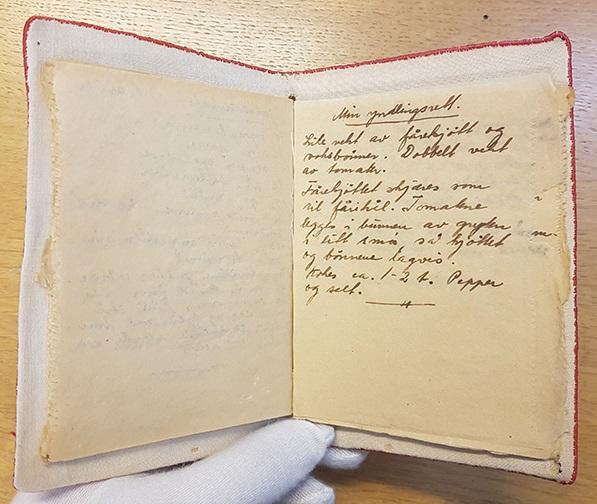 Min yndlingsrett.
Like vekt av fårekjøtt og
voksbønner. Dobbelt vekt
av tomater.
Fårekjøttet skjæres som
til fårikål. Tomatene
legges i bunnen av gryten
i litt smør, så kjøttet
og bønnene lagvis.
Kokes ca. 1-2 t. Pepper
og salt.